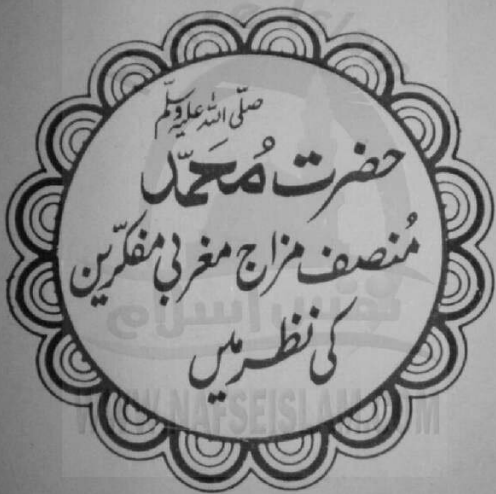 صلّی اللہ علیہ وسلّم
حضرت مُحَمَّد
مُنصف مزاج مغربی مفکّرین
کی نظر میں
نفس اسلام
WWW.NAFSEISLAM.COM